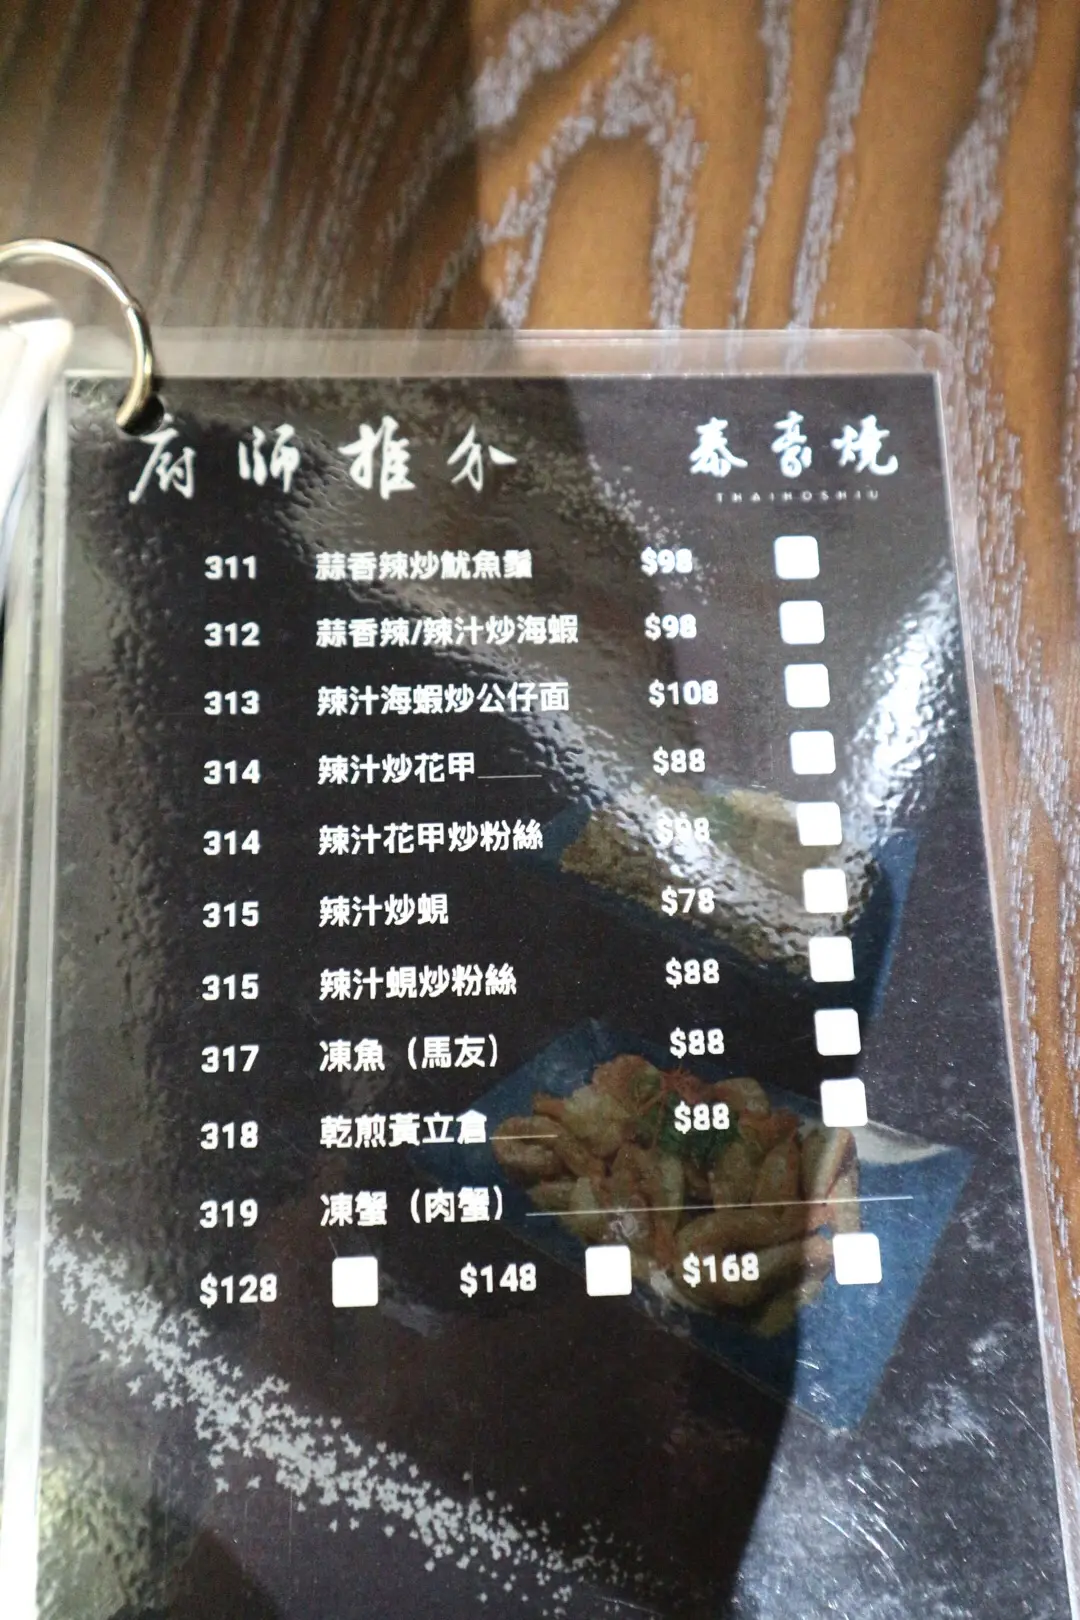 廚師推介 泰豪燒
THAIHOSHIU
311 蒜香辣炒魷魚鬚 $98
312 蒜香辣/辣汁炒海蝦 $98
313 辣汁海蝦炒公仔面 $108
314 辣汁炒花甲 $88
314 辣汁花甲炒粉絲 $98
315 辣汁炒蜆 $78
315 辣汁蜆炒粉絲 $88
317 凍魚（馬友） $88
318 乾煎黃立倉 $88
319 凍蟹（肉蟹）
$128 $148 $168